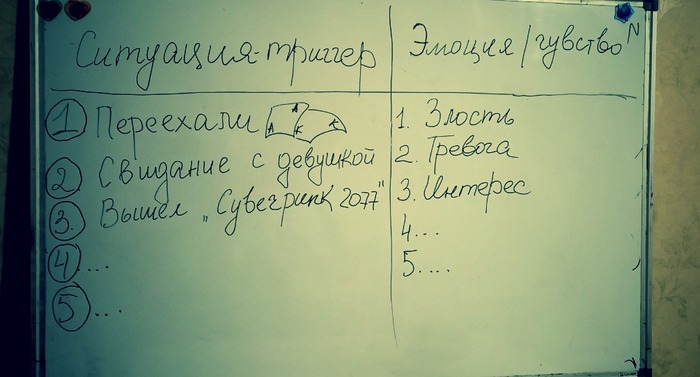 Ситуация-триггер
Эмоция/чувство
① Переехали А А К К
1. Злость
② Свидание с девушкой
2. Тревога
③ Вышел „Cyberpunk 2077"
3. Интерес
④ ...
4...
⑤ ...
5....